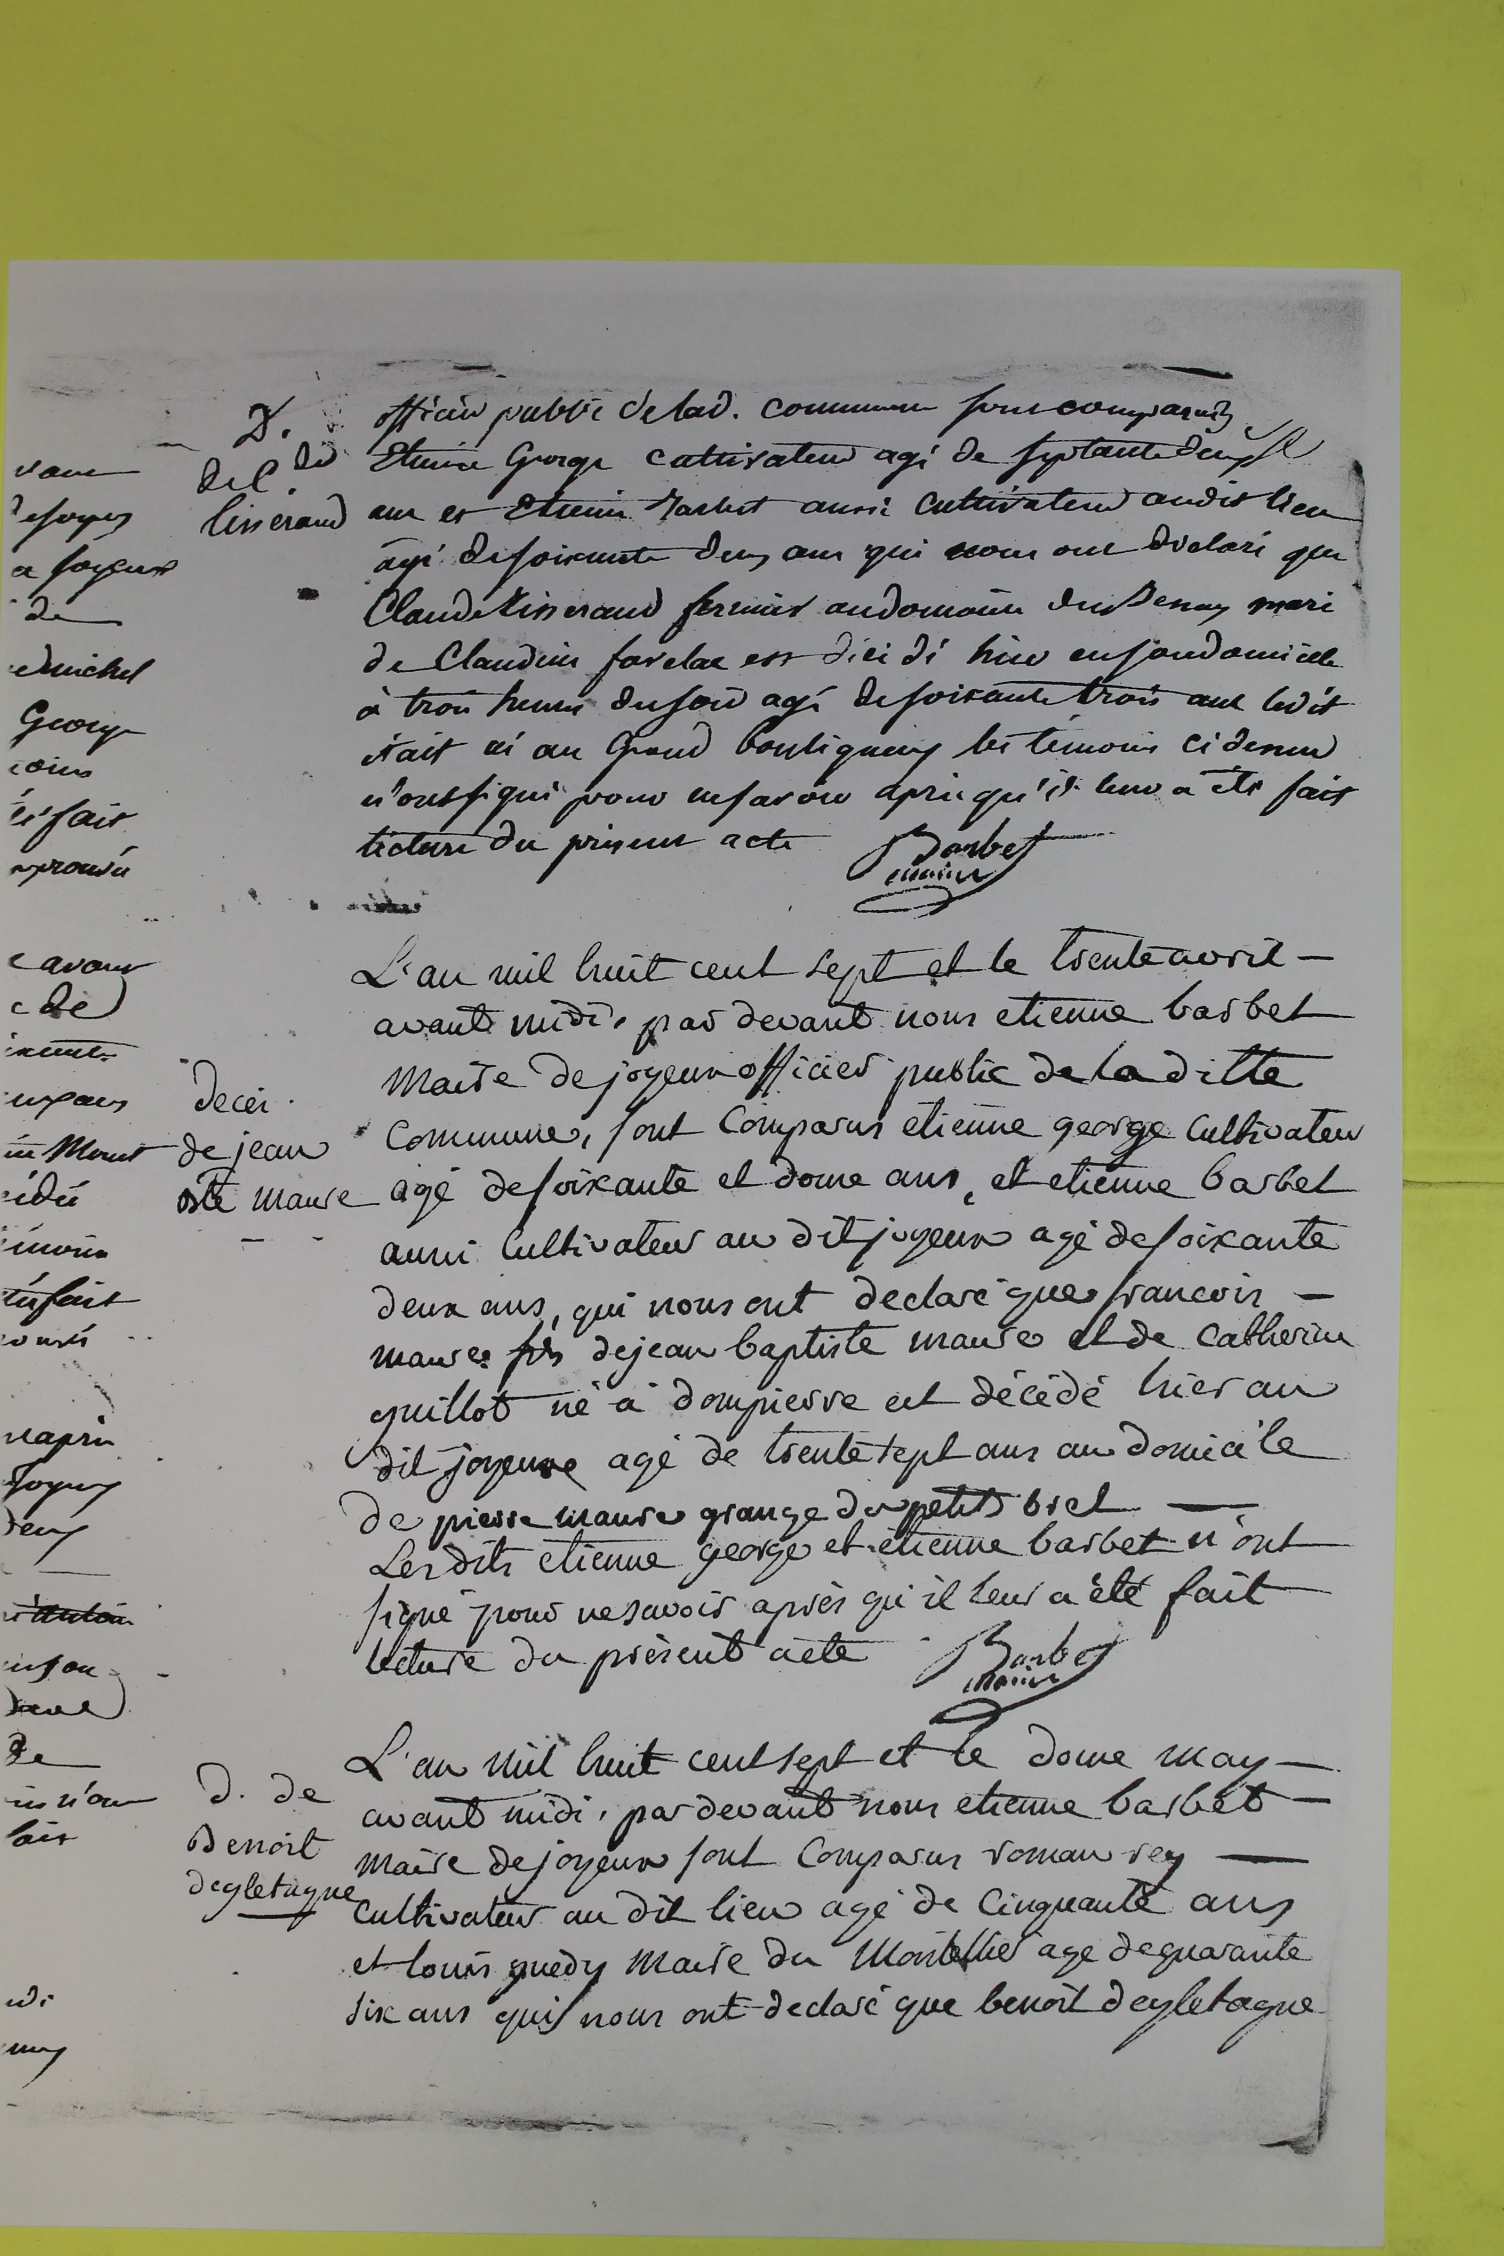 D.
de C.de
tisserand
officier public de lad. commune sont comparus
Etienne George cultivateur agé de septante deux
ans et Etienne Barbet aussi cultivateur audit lieu
agé de soixante deux ans qui nous ont déclaré que
Claude tisserand fermier au domaine du Benay mari
de Claudine favelac est dicidé hier en son domicille
à trois heures du soir agé de soixante trois ans ledit
était né au Grand bouligneux les témoins ci dessus
n'ont signé pour ne savoir après qu'il leur a été fait
lecture du présent acte
Barbet
maire
L'an mil huit cent sept et le trente avril —
avant midi, par devant nous etienne barbet
Maire de joyeux officier public de la ditte
Commune, sont Comparus etienne george Cultivateur
agé de soixante et douze ans, et etienne barbet
aussi Cultivateur au dit joyeux agé de soixante
deux ans, qui nous ont declaré que francois —
maure fils de jean baptiste maure et de Catherine
guillot né à dompierre est décédé hier au
dit joyeux agé de trente sept ans au domicile
de pierre maure grange du petit bret —
Les dits etienne george et etienne barbet n'ont
signé pour ne savoir après qu'il leur a été fait
lecture du présent acte
Barbet
maire
decès
de jean
bste maure
L'an mil huit cent sept et le douze may —
avant midi, par devant nous etienne barbet —
maire de joyeux sont Comparus roman rey —
Cultivateur au dit lieu agé de Cinquante ans
et louis guedy Maire du Montellier agé de quarante
six ans qui nous ont declaré que benoit degletagne
d. de
Benoit
degletagne
de
edmichel
George
fait
avant
de